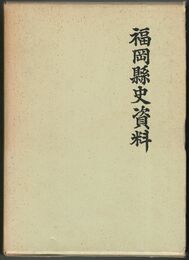 福岡縣史資料